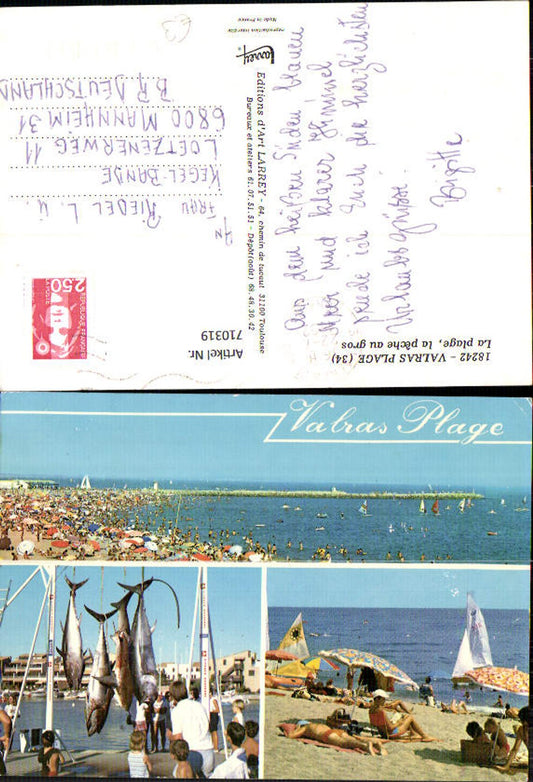 18242 - VALRAS PLAGE (34)
La plage, la pêche au gros
Aus dem heißen Süden blauen
Meer und klarer Himmel
sende ich Euch die herzlichsten
Urlaubsgrüsse.
Brigitte
Editions d'Art LARREY - 64, chemin de tucaut 31100 Toulouse
Bureaux et ateliers 61.07.51.51 - Dépôt(août) 68.48.39.42
Larrey
reproduction interdite
Made in France
Artikel Nr.
710319
2,50
LA POSTE
REPUBLIQUE FRANÇAISE
An
FRAU RIEDEL L. U.
KEGEL-BANDE
LOETZENERWEG 11
6800 MANNHEIM 31
BR DEUTSCHLAND
Valras Plage